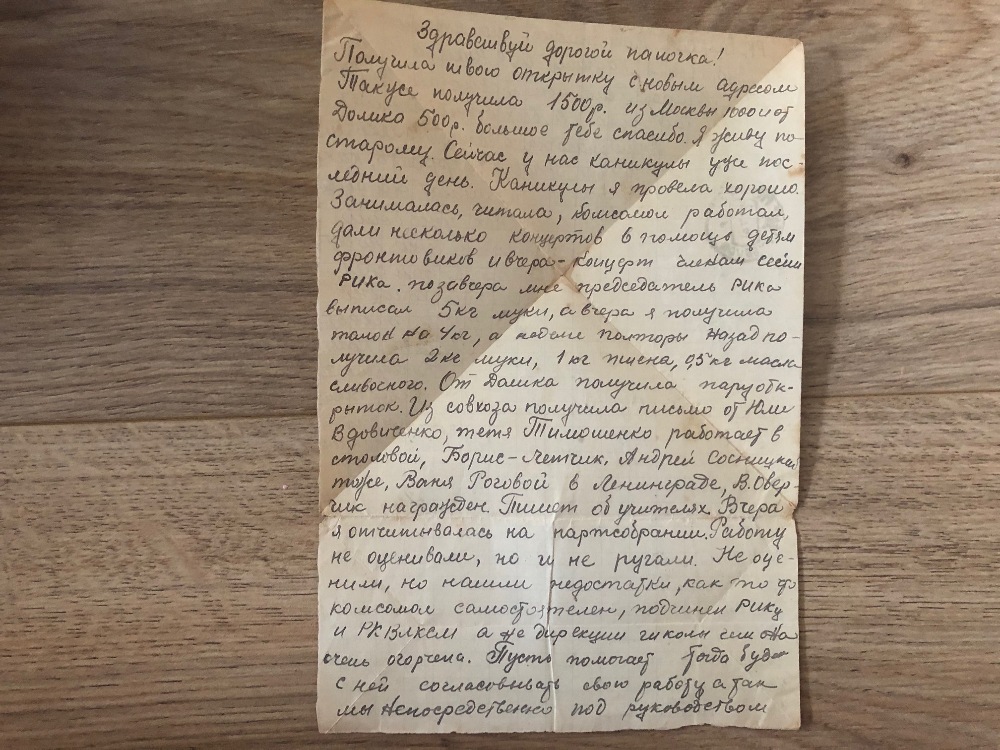 Здравствуй дорогой папочка!
Получила твою открытку с новым адресом
Также получила 1500р. из Москвы 1000 и от
Долика 500р. большое тебе спасибо. Я живу по-
старому. Сейчас у нас каникулы уже пос-
ледний день. Каникулы я провела хорошо.
Занималась, читала, комсомол работал,
дали несколько концертов в помощь детям
фронтовиков и вчера - концерт членам сесии
РИКа. позавчера мне председатель РИКа
выписал 5кг муки, а вчера я получила
талон на 4кг, а недели полторы назад по-
лучила 2кг муки, 1кг пшена, 0,5кг масла
сливосного. От Долика получила пару отк-
рыток. Из совхоза получила письмо от Юли
Вдовиченко, тетя Тимошенко работает в
столовой, Борис - летчик, Андрей Сосницкий
тоже, Ваня Роговой в Ленинграде, В. Овер
чик награжден. Пишет об учителях. Вчера
я отчитывалась на партсобрании. Работу
не оценивали, но и не ругали. Не оце-
нили, но нашли недостатки, как то
комсомол самостоятелен, подчинен РИКу
и РКВЛКСМ а не дирекции школы чем она
очень огорчена. Пусть помогает тогда буде
с ней согласовывать свою работу а так
мы непосредственно под руководством